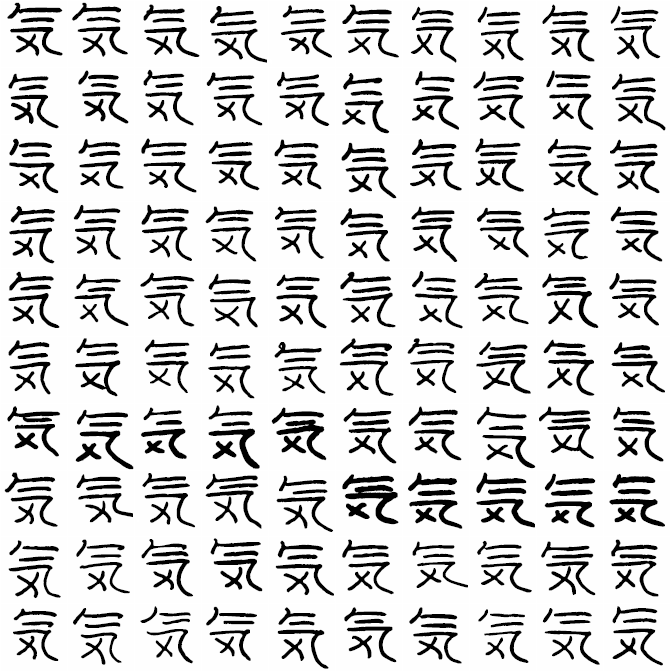 気気気気気気気気気気
気気気気気気気気気気
気気気気気気気気気気
気気気気気気気気気気
気気気気気気気気気気
気気気気気気気気気気
気気気気気気気気気気
気気気気気気気気気気
気気気気気気気気気気
気気気気気気気気気気